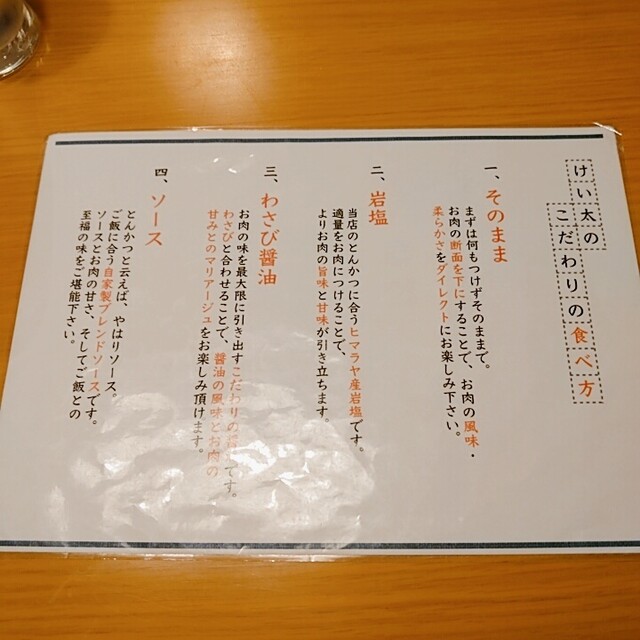 けい太の
こだわりの食べ方
一、そのまま
まずは何もつけずそのままで。
お肉の断面を下にすることで、お肉の風味・
柔らかさをダイレクトにお楽しみ下さい。
二、岩塩
当店のとんかつに合うヒマラヤ産岩塩です。
適量をお肉につけることで、
よりお肉の旨味と甘味が引き立ちます。
三、わさび醤油
お肉の味を最大限に引き出すこだわりの です。
わさびと合わせることで、醤油の風味とお肉の
甘みとのマリアージュをお楽しみ頂けます。
四、ソース
とんかつと云えば、やはりソース。
ご飯に合う自家製ブレンドソースです。
ソースとお肉の甘さ、そしてご飯との
至福の味をご堪能下さい。